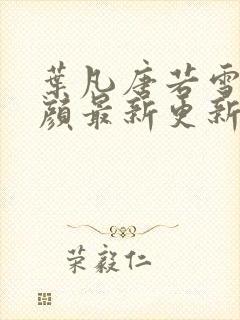 葉凡唐若雪
顔最新更新
荣毅仁